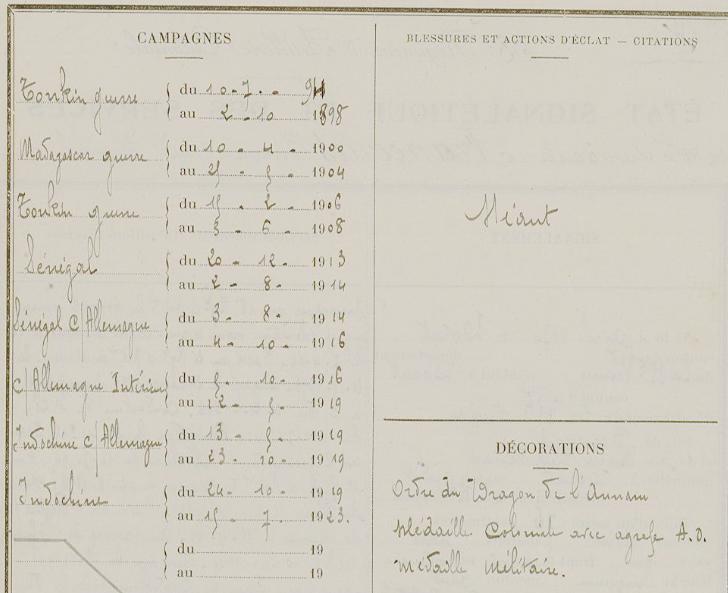 CAMPAGNES
Tonkin guerre
du 10 - 7 - 94
au 2 - 10 - 1898
Madagascar guerre
du 10 - 4 - 1900
au 25 - 5 - 1904
Tonkin guerre
du 15 - 2 - 1906
au 3 - 6 - 1908
Sénégal
du 20 - 12 - 1913
au 2 - 8 - 1914
Sénégal c/Allemagne
du 3 - 8 - 1914
au 4 - 10 - 1916
c/Allemagne Intérieur
du 5 - 10 - 1916
au 12 - 5 - 1919
Indochine c/Allemagne
du 13 - 5 - 1919
au 23 - 10 - 1919
Indochine
du 24 - 10 - 1919
au 15 - 7 - 1923.
du 19
au 19
BLESSURES ET ACTIONS D'ÉCLAT — CITATIONS
Néant
DÉCORATIONS
Ordre du Dragon de l'Annam
Médaille Coloniale avec agrafe A.O.
Médaille Militaire.